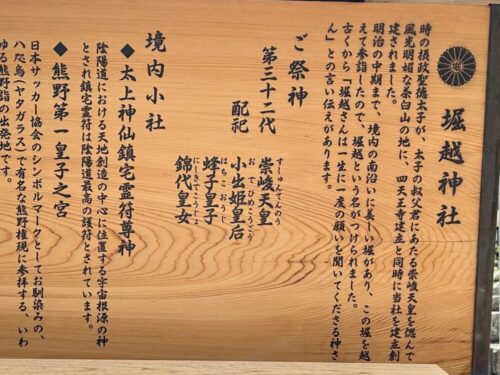 堀越神社
時の摂政聖徳太子が、太子の叔父君にあたる崇峻天皇を偲んで
風光明媚な茶臼山の地に、四天王寺建立と同時に当社を建立創
建されました。
明治の中期まで、境内の南沿いに美しい堀があり、この堀を越
えて参詣したので、堀越という名がつけられました。
古くから「堀越さんは一生に一度の願いを聞いてくださる神さ
ん」との言い伝えがあります。
ご祭神
第三十二代 崇峻天皇 すしゅんてんのう
配祀 小出姫皇后 おでひめこうごう
蜂子皇子 はちこおうじ
錦代皇女 にしきてこうじょ
境内小社
◆太上神仙鎮宅霊符尊神
陰陽道における天地創造の中心に位置する宇宙根源の神
とされ鎮宅霊符は陰陽道最高の護符とされています。
◆熊野第一皇子之宮
日本サッカー協会のシンボルマークとしてお馴染みの、
八咫烏(ヤタガラス)で有名な熊野権現に参拝する、いわ
ゆる熊野詣の出発地です。